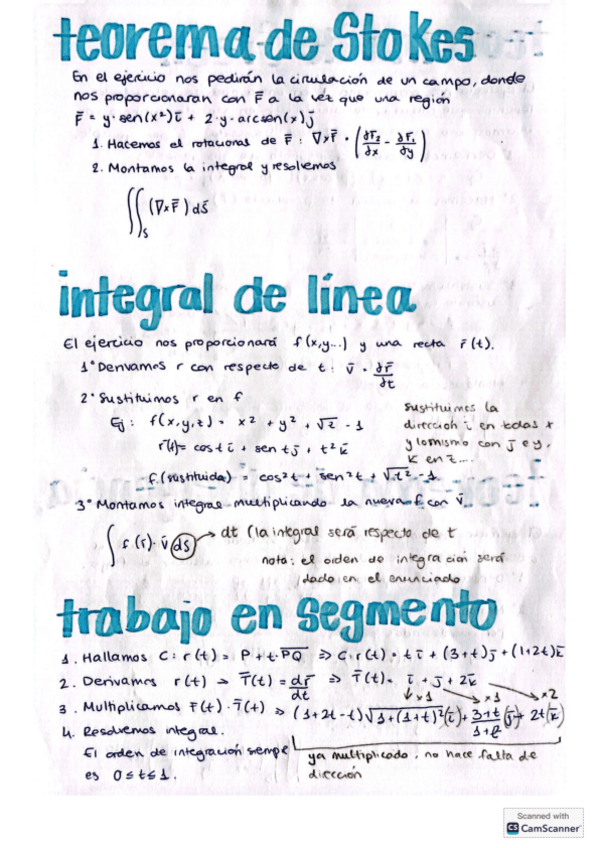 teorema de Stokes
En el ejercicio nos pedirán la circulación de un campo, donde
nos proporcionaran con F̄ a la vez que una región
F̄ = y·sen(x²)ī + 2·y·arcsen(x)j̄
1. Hacemos el rotacional de F̄ : ∇xF̄ = (∂F₂/∂x - ∂F₁/∂y)
2. Montamos la integral y resolvemos
∬_S (∇xF̄) ds̄
integral de línea
El ejercicio nos proporcionará f(x,y...) y una recta r̄(t).
1° Derivamos r con respecto de t : v̄ = ∂r̄/∂t
2° Sustituimos r en f
Ej: f(x,y,z) = x² + y² + √z - 1
r̄(t) = cos t ī + sen t j̄ + t² k̄
f(sustituida) = cos²t + sen²t + √t² - 1
Sustituimos la
dirección i en todas x
y lo mismo con j e y,
k en z....
3° Montamos integral multiplicando la nueva f con v̄
∫ f(r)·v̄ ds → dt (la integral será respecto de t
nota: el orden de integración será
dado en el enunciado
trabajo en segmento
1. Hallamos C: r(t) = P + t·PQ ⇒ C: r(t) = t ī + (3+t)j̄ + (1+2t)k̄
2. Derivamos r(t) → T̄(t) = dr̄/dt ⇒ T̄(t) = ī + j̄ + 2k̄
x1 x1 x2
3. Multiplicamos F̄(t)·T̄(t) ⇒ (1+2t-t)√1+(1+t)² (ī) + 3+t/1+t² (j̄) + 2t(k̄)
4. Resolvemos integral.
El orden de integración siempre
es 0≤t≤1.
ya multiplicado, no hace falta de
dirección
Scanned with
CS CamScanner